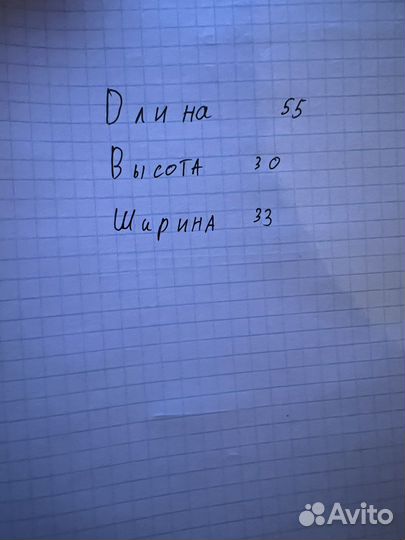 Длина 55
Высота 30
Ширина 33
Avito